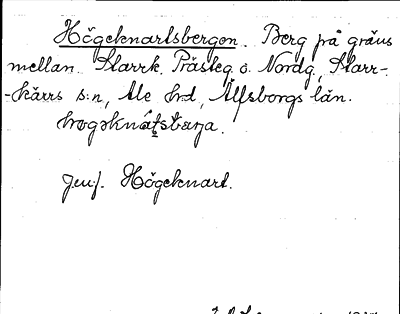 Högeknartsbergen. Berg på gräns
mellan Starrk. Prästeg. o. Nordg., Starr-
-kärrs s:n, Ale hd, Älfsborgs län.
Jmf. Högeknart.